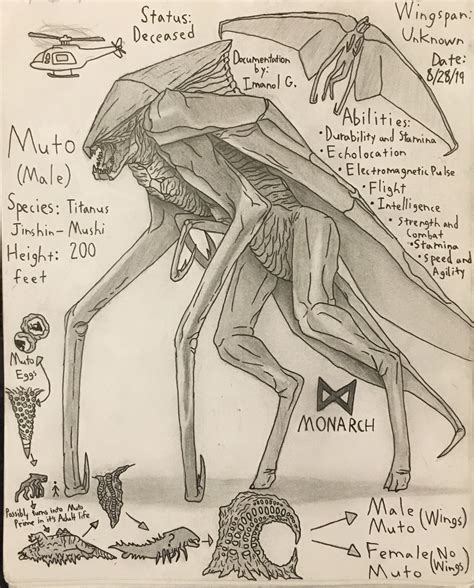 Status:
Deceased
Wingspan:
Unknown
Date:
8/28/19
Documentation
by:
Imanol G.
Abilities:
• Durability and Stamina
• Echolocation
• Electromagnetic Pulse
• Flight
• Intelligence
• Strength and
Combat
• Stamina
• Speed and
Agility
Muto
(Male)
Species: Titanus
Jinshin-Mushi
Height: 200
feet
Muto
Eggs
MONARCH
Possibly turns into Muto
Prime in its Adult life
Male (Wings)
Muto
Female (No
Muto Wings)